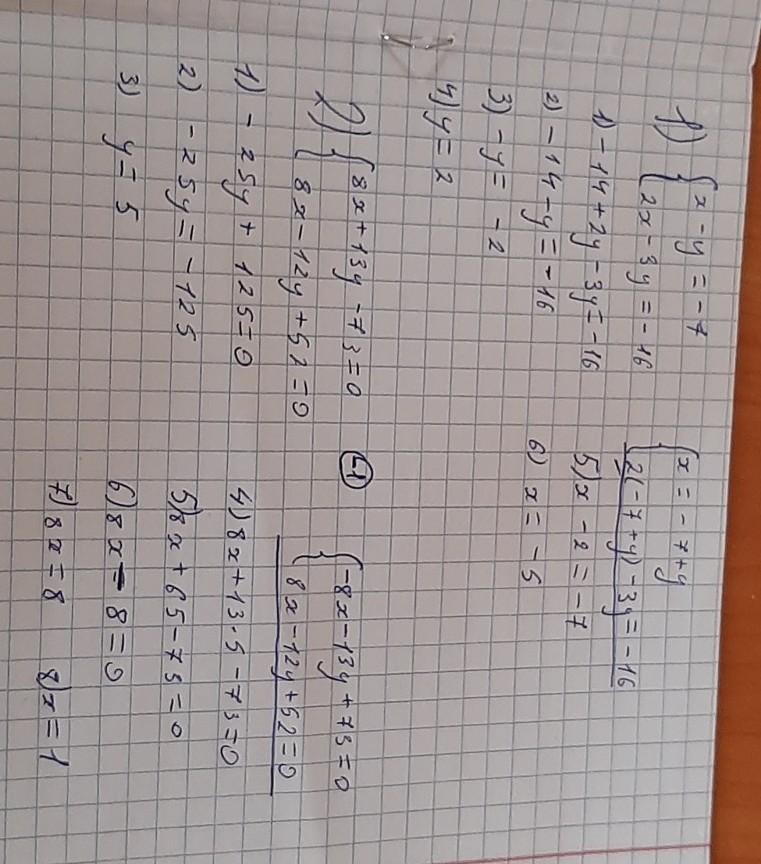 1) { x - y = -7
2x - 3y = -16
{ x = -7 + y
2(-7 + y) - 3y = -16
1) -14 + 2y - 3y = -16
2) -14 - y = -16
3) -y = -2
4) y = 2
5) x - 2 = -7
6) x = -5
2) { 8x + 13y - 73 = 0
8x - 12y + 52 = 0
(-1)
{ -8x - 13y + 73 = 0
8x - 12y + 52 = 0
1) -25y + 125 = 0
2) -25y = -125
3) y = 5
4) 8x + 13·5 - 73 = 0
5) 8x + 65 - 73 = 0
6) 8x - 8 = 0
7) 8x = 8 8) x = 1